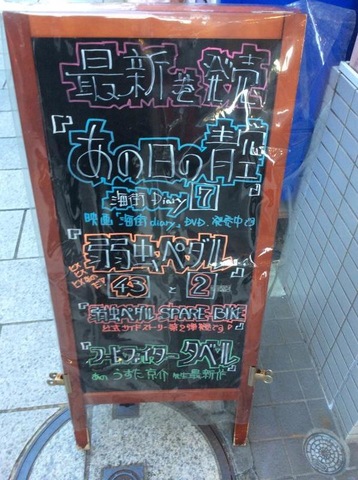 最新巻発売
『あの日の青空』
海街Diary 7
映画「海街diary」DVD、発売中です
『弱虫ペダル』
43 と 2
『弱虫ペダル SPARE BIKE』
公式サイドストーリー第2弾です♪
『フードファイター タベル』
あの うすた京介 先生最新作